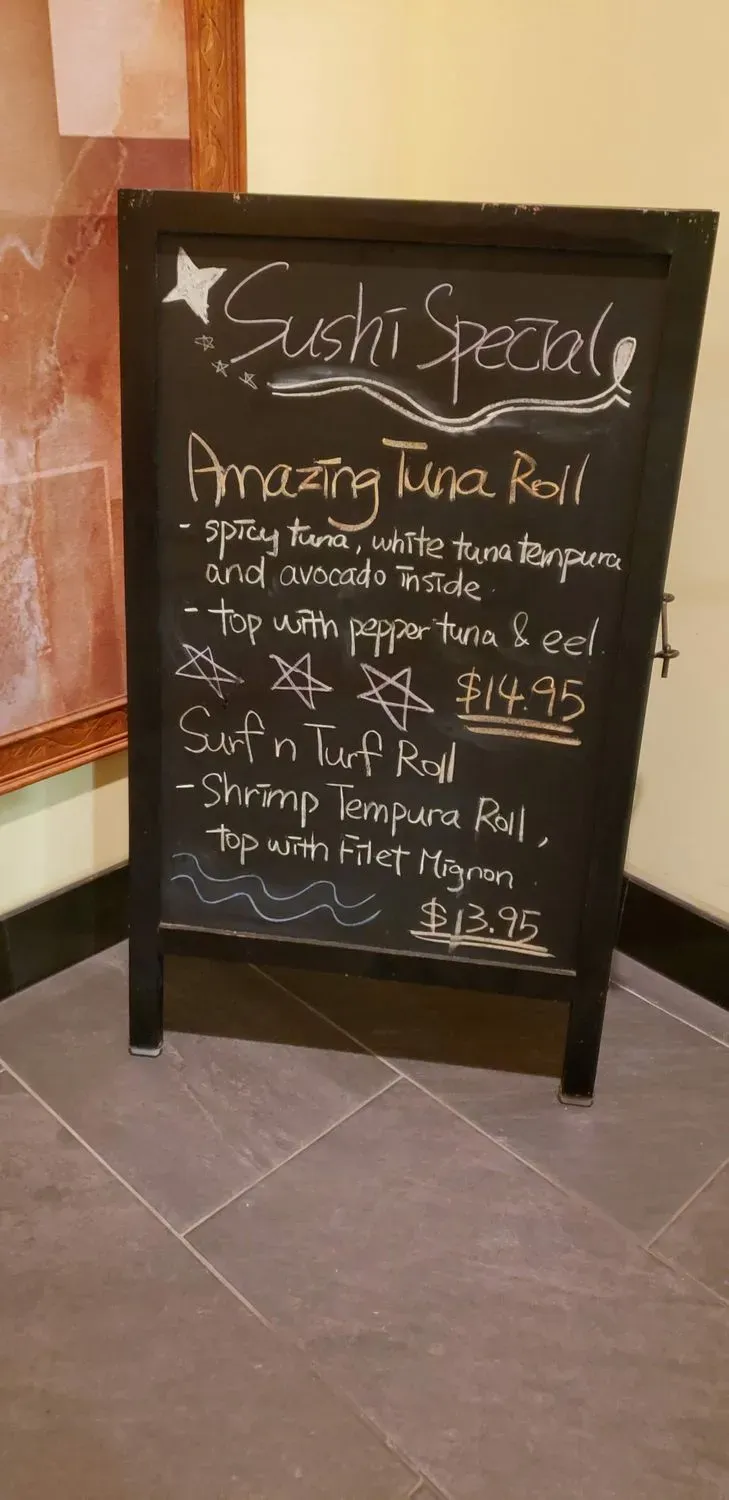 Sushi Special
Amazing Tuna Roll
- spicy tuna, white tuna tempura
and avocado inside.
- top with pepper tuna & eel.
$14.95
Surf n Turf Roll
- Shrimp Tempura Roll,
top with Filet Mignon.
$13.95